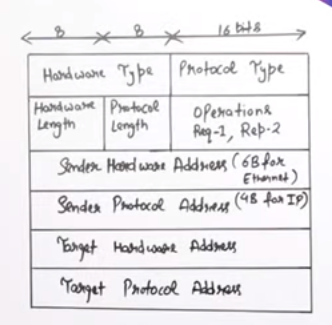 8 8 16 bits
Hardware Type Protocol Type
Hardware Length Protocol Length Operations Req-1, Rep-2
Sender Hardware Address (6B for Ethernet)
Sender Protocol Address (4B for IP)
Target Hardware Address
Target Protocol Address